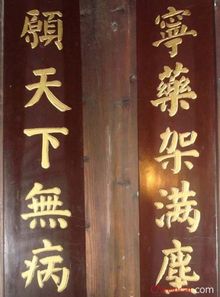 寧藥架满塵
願天下無病